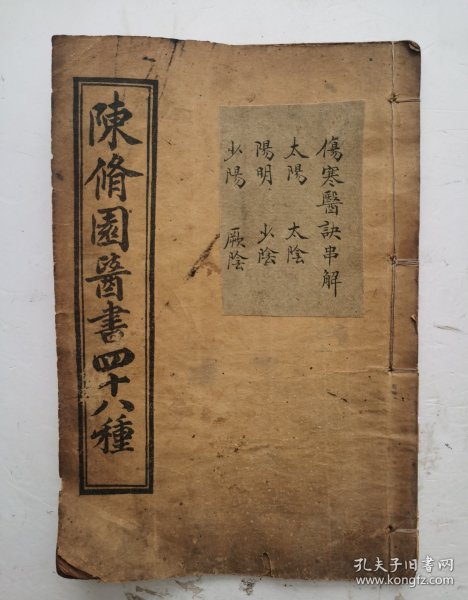 陳脩園醫書四十八種
傷寒醫訣串解
太陽 太陰
陽明 少陰
少陽 厥陰
孔夫子旧书网
www.kongfz.com